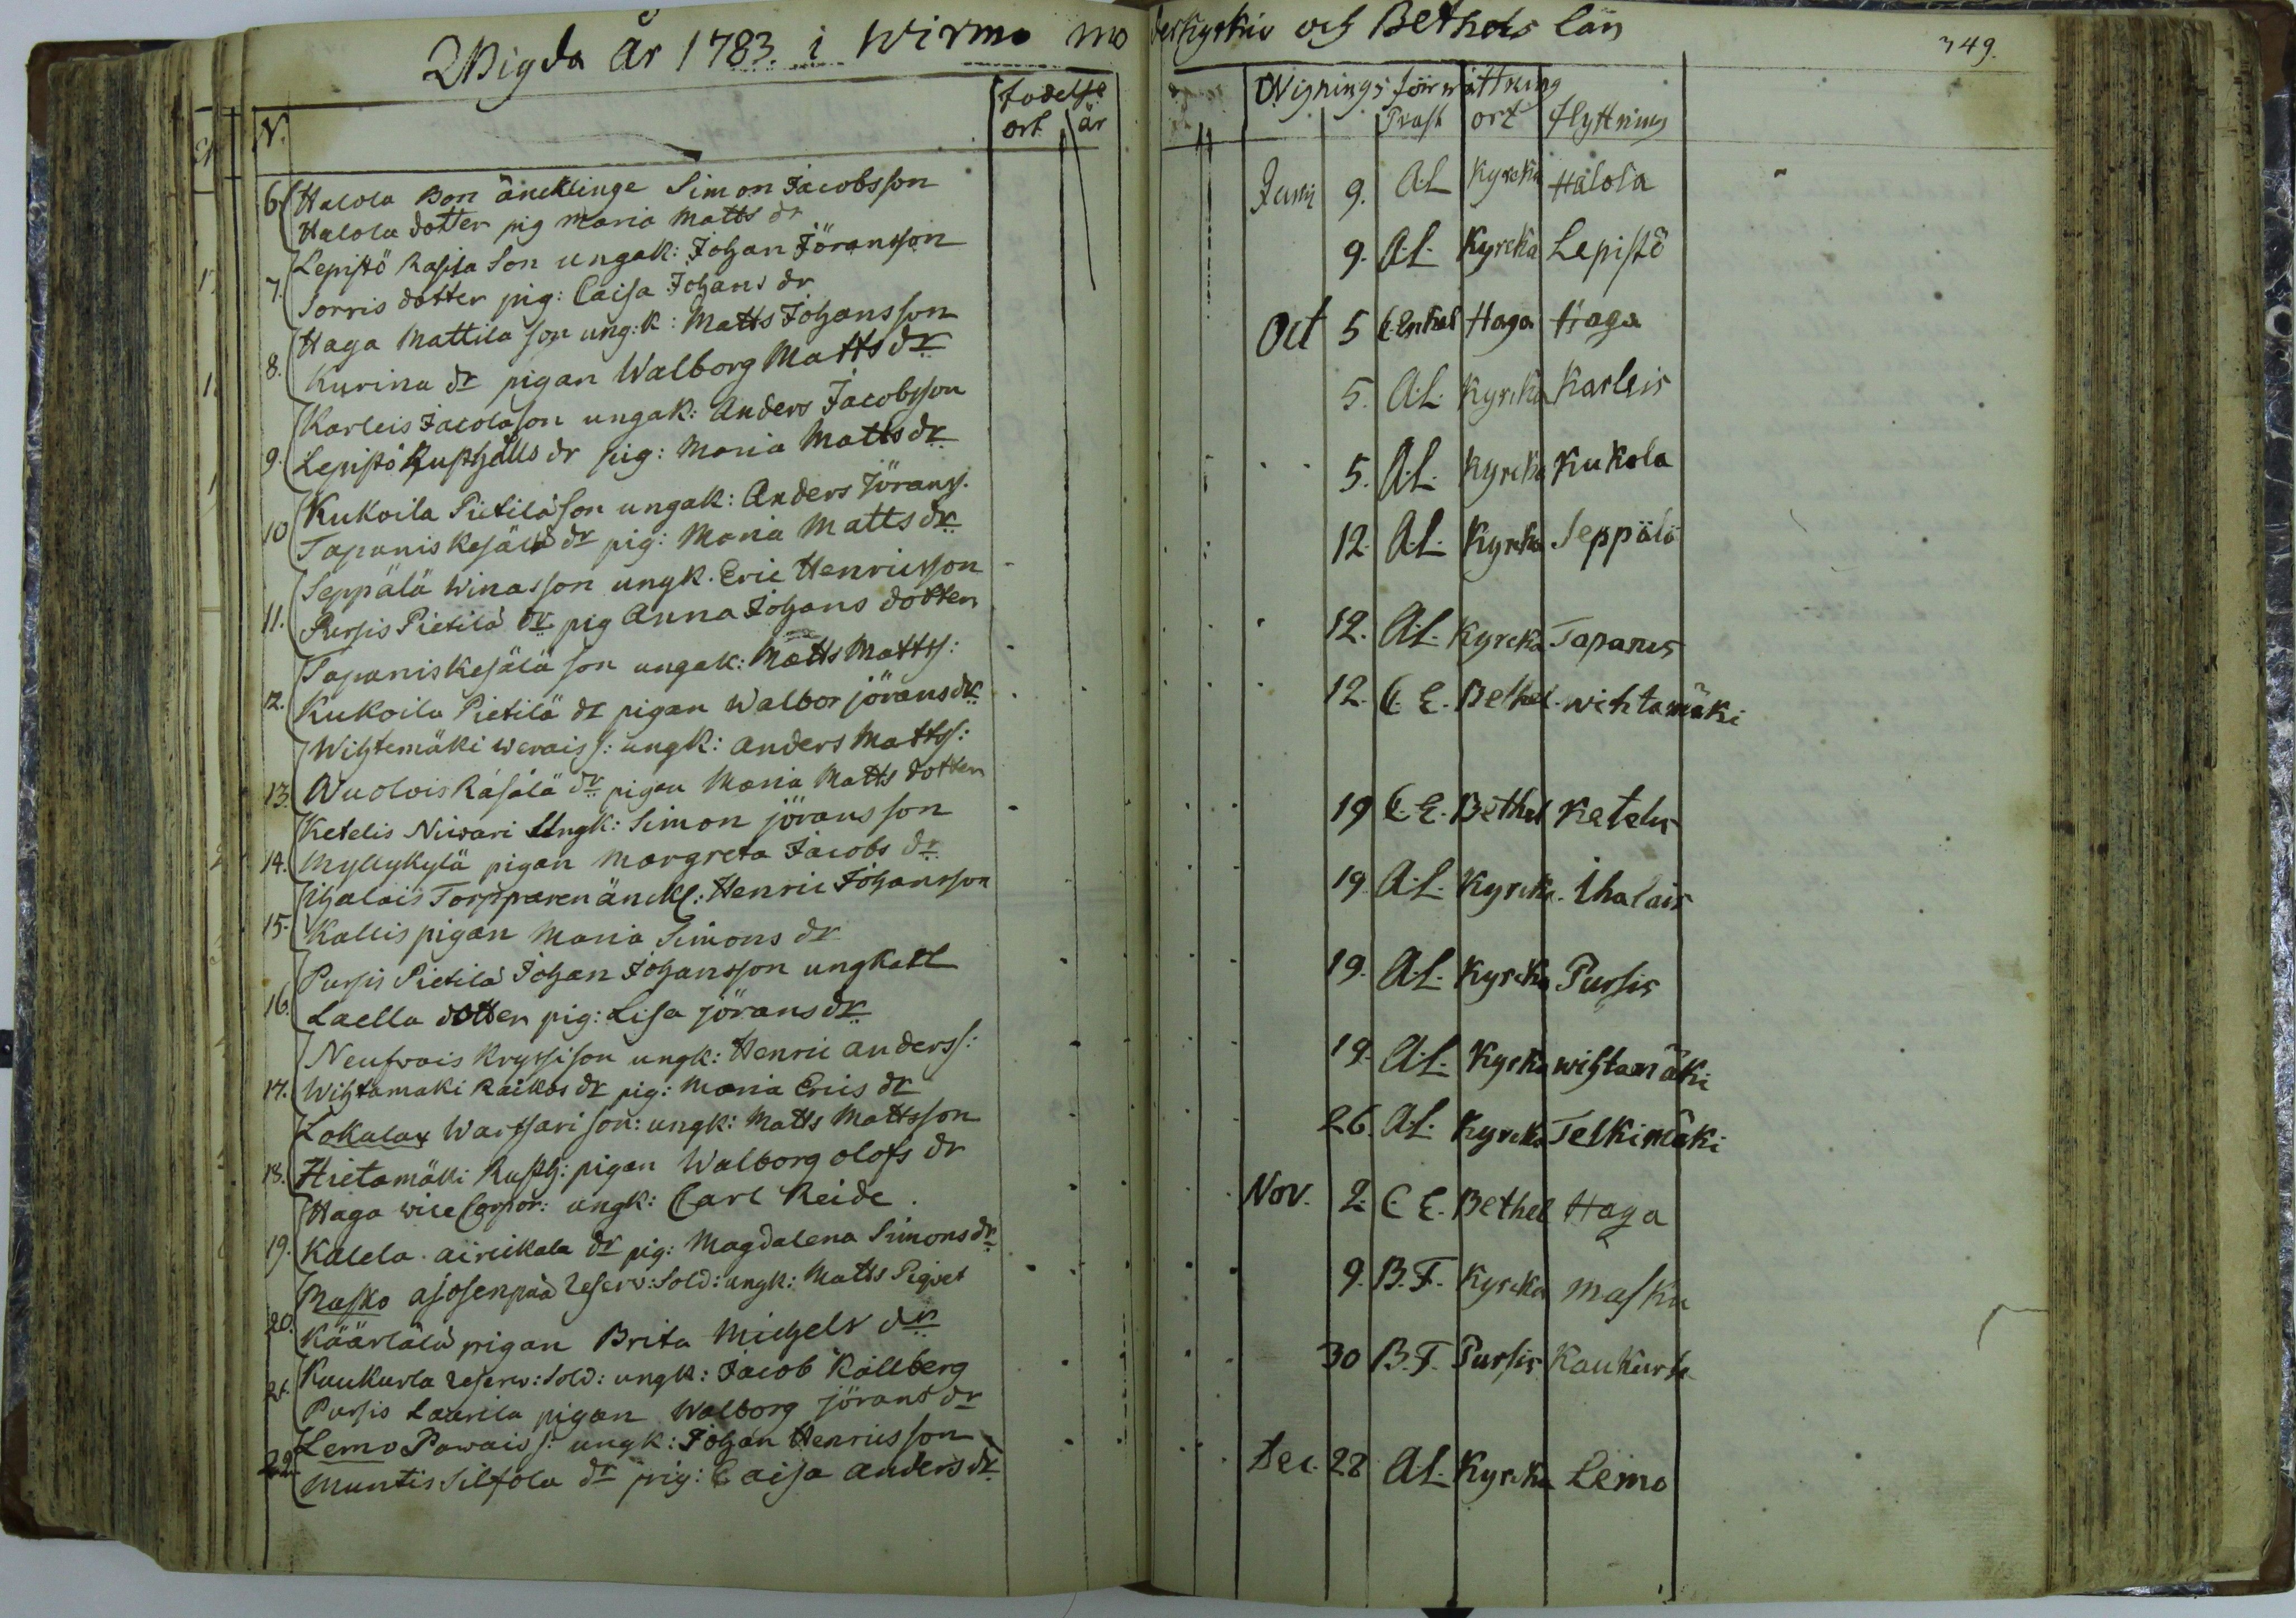 Wigda År 1783. i Wirmo moderkyrkio och Bethels län
349.
N.
födelse
ort år
Wignings förrättning
Präst ort flyttning
6. Halola Bon äncklinge Simon Jacobsson
Halola dotter pig Maria Matts dr
Junii 9. A.L. Kyrcka Halola
7. Lepistö Rasila Son ungak: Johan Jöransson
Sorris dotter pig: Caisa Johans dr
9. A.L. Kyrcka Lepistö
8. Haga Mattila son ung:k: Matts Johansson
Kurina dr pigan Walborg Matts dr
Oct 5 C. Enkel Haga Haga
9. Karleis Jacola son ungak: Anders Jacobsson
Lepistö Rusthålls dr pig: Maria Matts dr
5. A.L. Kyrcka Karleis
10 Kukoila Pietilä son ungak: Anders Jörans.
Tapanis Kesälä dr pig: Maria Matts dr
5. A.L. Kyrcka Kukola
11. Seppälä Winas son ungk. Eric Henricsson
Pursis Pietilä dr pig Anna Johans dotter
12. A.L. Kyrcka Seppälä
12. Tapanis Kesälä son ungak: Matts Matts:
Kukoila Pietilä dr pigan Walbor jörans dr
12. A.L. Kyrcka Tapanis
13. Wihtemäki werais s: ungk: Anders Matts:
Wuolois Räsälä dr pigan Maria Matts dotter
12. C.E. Bethel wihtamäki
14. Ketelis Niwari Ungk: Simon jörans son
Myllykylä pigan Margreta Jacobs dr
19 C.E. Bethel Ketelis
15. Ihalais Torpparen änckl: Henric Johansson
Kallis pigan Maria Simons dr
19. A.L. Kyrcka Ihalais
16. Pursis Pietilä Johan Johansson ungkarl
Laella dotter pig: Lisa jörans dr
19. A.L. Kyrcka Pursis
17. Neufvois Kryssi son ungk: Henric anders s:
Wihtamaki Raikos dr pig: Maria Erics dr
19. A.L. Kyrcka wihtamäki
18. Lokalax Warfsari son: ungk: Matts Mattsson
Hietamäki Rusth: pigan Walborg olofs dr
26. A.L. Kyrcka Telkimäki
19. Haga vice Corpor: ungk: Carl Reide.
Kalela airickala dr pig: Magdalena Simons dr
Nov. 2. C E. Bethel Haga
20. Masko ajosenpää reserv: Sold: ungk: Matts Piqvet
Käärlälä pigan Brita Michels dr
9. B.F. Kyrcka Masku
21. Kaukurla reserv: Sold: ungk: Jacob Källberg
Pursis Laurila pigan Walborg jörans dr
30 B.F. Pursis Kaukurla
22. Lemo Pawais s: ungk: Johan Henricsson
Muntis Silfola dr pig: Caisa anders dr
Dec. 28 A.L. Kyrcka Lemo